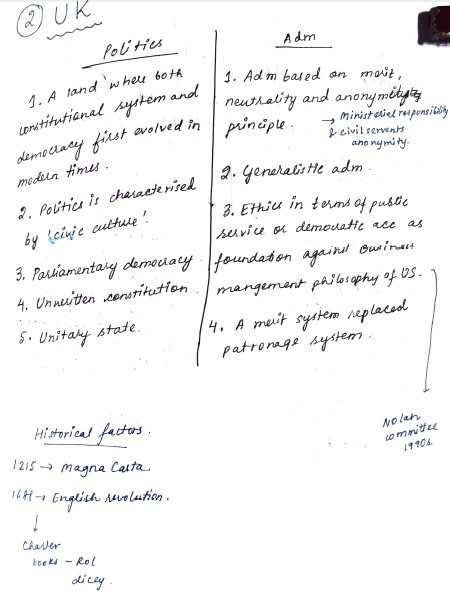 ② UK
Politics
1. A land where both
constitutional system and
democracy first evolved in
modern times.
2. Politics is characterised
by 'civic culture'
3. Parliamentary democracy
4. Unwritten constitution
5. Unitary state.
Adm
1. Adm based on merit,
neutrality and anonymity
principle.
→ Ministerial responsibility
& civil servents
anonymity.
2. Generalistic adm.
3. Ethics in terms of public
service or democratic acc as
foundation against Business
mangement philosophy of US.
4. A merit system replaced
patronage system.
Nolan
committee
1990s.
Historical factors.
1215 → Magna Carta
→ English revolution.
↓
Charter
books - RoL
dicey.